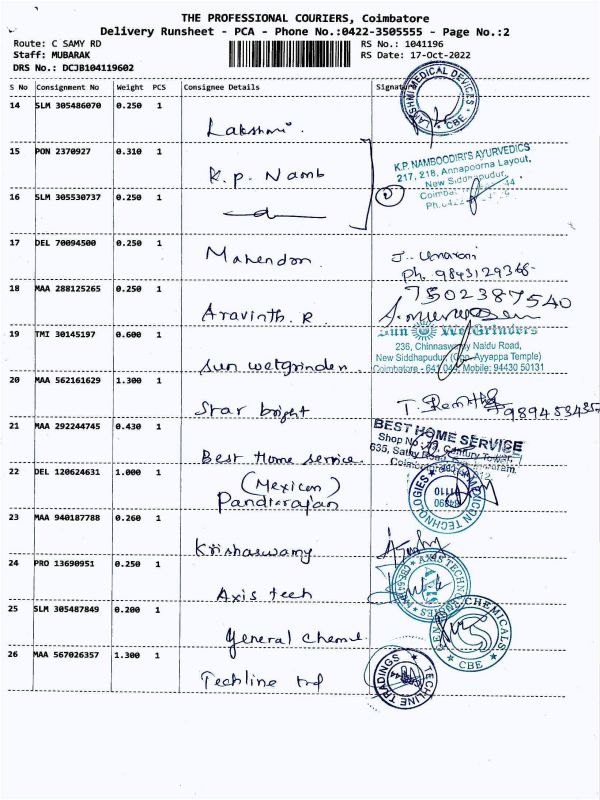 THE PROFESSIONAL COURIERS, Coimbatore
Delivery Runsheet - PCA - Phone No.:0422-3505555 - Page No.:2
Route: C SAMY RD
RS No.: 1041196
Staff: MUBARAK
RS Date: 17-Oct-2022
DRS No.: DCJB104119602
S No Consignment No Weight PCS Consignee Details Signature
14 SLM 305486070 0.250 1
Lakshmi.
LAKSHMI MEDICAL DEVICES CBE
15 PON 2370927 0.310 1
K.p. Namb
K.P. NAMBOODIRI'S AYURVEDICS
217, 218, Annapoorna Layout,
New Siddhapudur,
16 SLM 305530737 0.250 1
17 DEL 70094500 0.250 1
Mahendran.
J. Umarani
Ph. 9843129366
18 MAA 288125265 0.250 1
Aravinth. R
7502387540
19 TMI 30145197 0.600 1
Sun wetgrinden.
Sun Wet Grinders
236, Chinnaswamy Naidu Road,
New Siddhapudur (Opp. Ayyappa Temple)
Coimbatore - 641 044 Mobile: 94430 50131
20 MAA 562161629 1.300 1
Star bright
21 MAA 292244745 0.430 1
Best Home service.
BEST HOME SERVICE
22 DEL 120624631 1.000 1
(Mexican)
Pandiarajan
MEXICON TECHNOLOGIES
23 MAA 940187788 0.260 1
Krishaswamy
24 PRO 13690951 0.250 1
Axis tech
25 SLM 305487849 0.200 1
General Cheml
GENERAL CHEMICALS CBE
26 MAA 567026357 1.300 1
Techline trd
TECHLINE TRADINGS